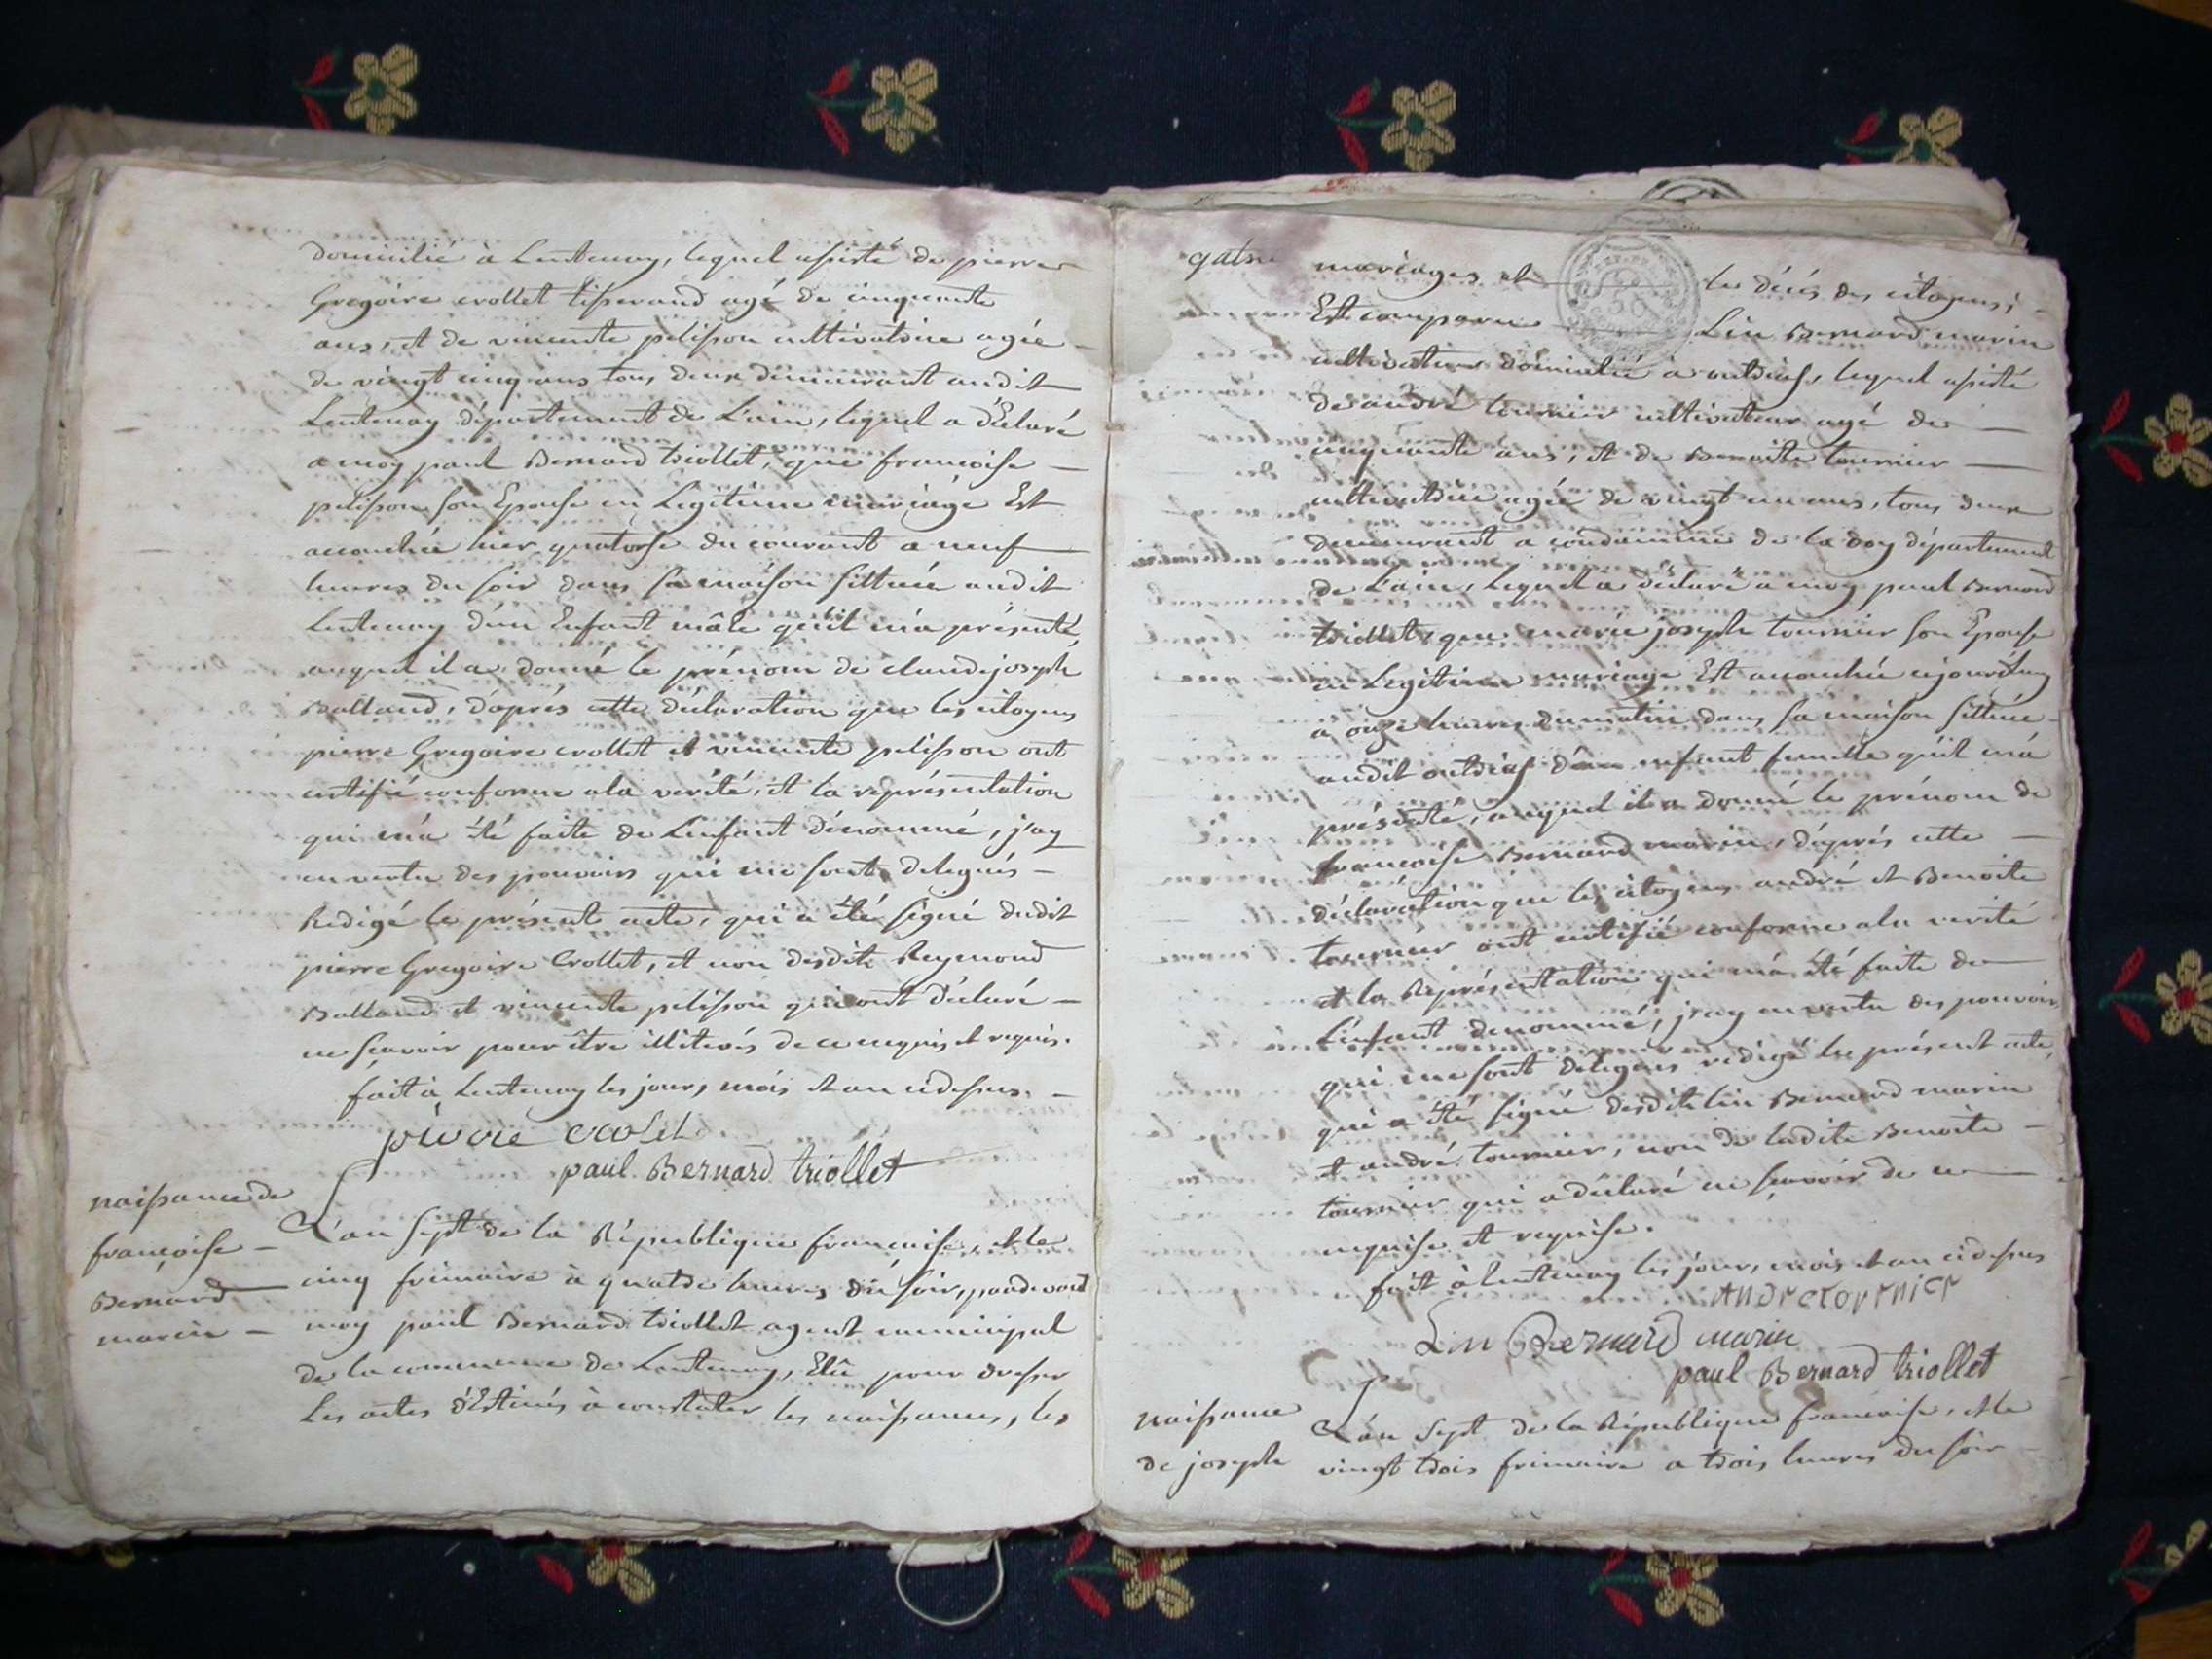 domicilié à Lentenay, lequel assisté de pierre
Gregoire crollet tisserand agé de cinquante
ans, et de vincente pelisson cultivatrice agée
de vingt cinq ans tous deux demeurant audit
Lentenay département de L'ain, lequel a déclaré
a moy paul Bernard triollet, que francoise
pelisson son Epouse en Legitime mariage Est
accouchée hier quatorse du courant a neuf
heures du soir dans sa maison sittuée audit
Lentenay d'un Enfant mâle qu'il m'a présenté,
auquel il a donné le prénom de claude joseph
Balland, d'aprés cette déclaration que les citoyens
pierre Gregoire crollet et vincente pelisson ont
certifié conforme a la vérité, et la représentation
qui m'a été faite de L'enfant dénommé, j'ay
en vertu des pouvoirs qui me sont delegués
Redigé le présent acte, qui a été signé dudit
pierre Gregoire Crollet, et non desdits Reymond
Balland et vincente pelisson qui ont déclaré
ne sçavoir pour être illiterés de ce enquis et requis.
fait à Lentenay les jour, mois et an cidessus.
pierre crolet
paul Bernard triollet
naissance de
francoise
Bernard
marin
L'an sept de la République francaise, et le
cinq frimaire à quatre heures du soir, pardevant
moy paul Bernard triollet agent municipal
de la commune de Lentenay, Elû pour dresser
Les actes déstinés à constater les naissances, les
quatre
mariages et les décés des citoyens;
Est comparu Lin Bernard marin
cultivateur domicilié a outriaz, lequel assisté
de andré tournier cultivateur agé de
cinquante ans, et de Benoite tournier
cultivatrice agée de vingt un ans, tous deux
demeurant a condamine de la doy département
de L'ain, Lequel a déclaré a moy paul Bernard
triollet, que marie joseph tournier son Epouse
en Legitime mariage Est accouchée cejourd'huy
a onze heures du matin dans sa maison sittuée
audit outriaz d'un enfant femelle qu'il m'a
présenté, auquel il a donné le prénom de
francoise Bernard marin, d'aprés cette
déclaration que les citoyens andré et Benoite
tournier ont certifié conforme a la verité
et la Représentation qui m'a été faite de
L'enfant denommé, j'ay en vertu des pouvoirs
qui me sont delegués redigé le présent acte,
qui a été signé desdits lin Bernard marin
et andré tournier, non de ladite Benoite
tournier qui a déclaré ne sçavoir de ce
enquise et requise.
fait à lentenay les jour, mois et an cidessus
Andre tovrnier
Lin Bernard marin
paul Bernard triollet
naissance
de joseph
L'an sept de la République francaise, et le
vingt trois frimaire a trois heures du soir